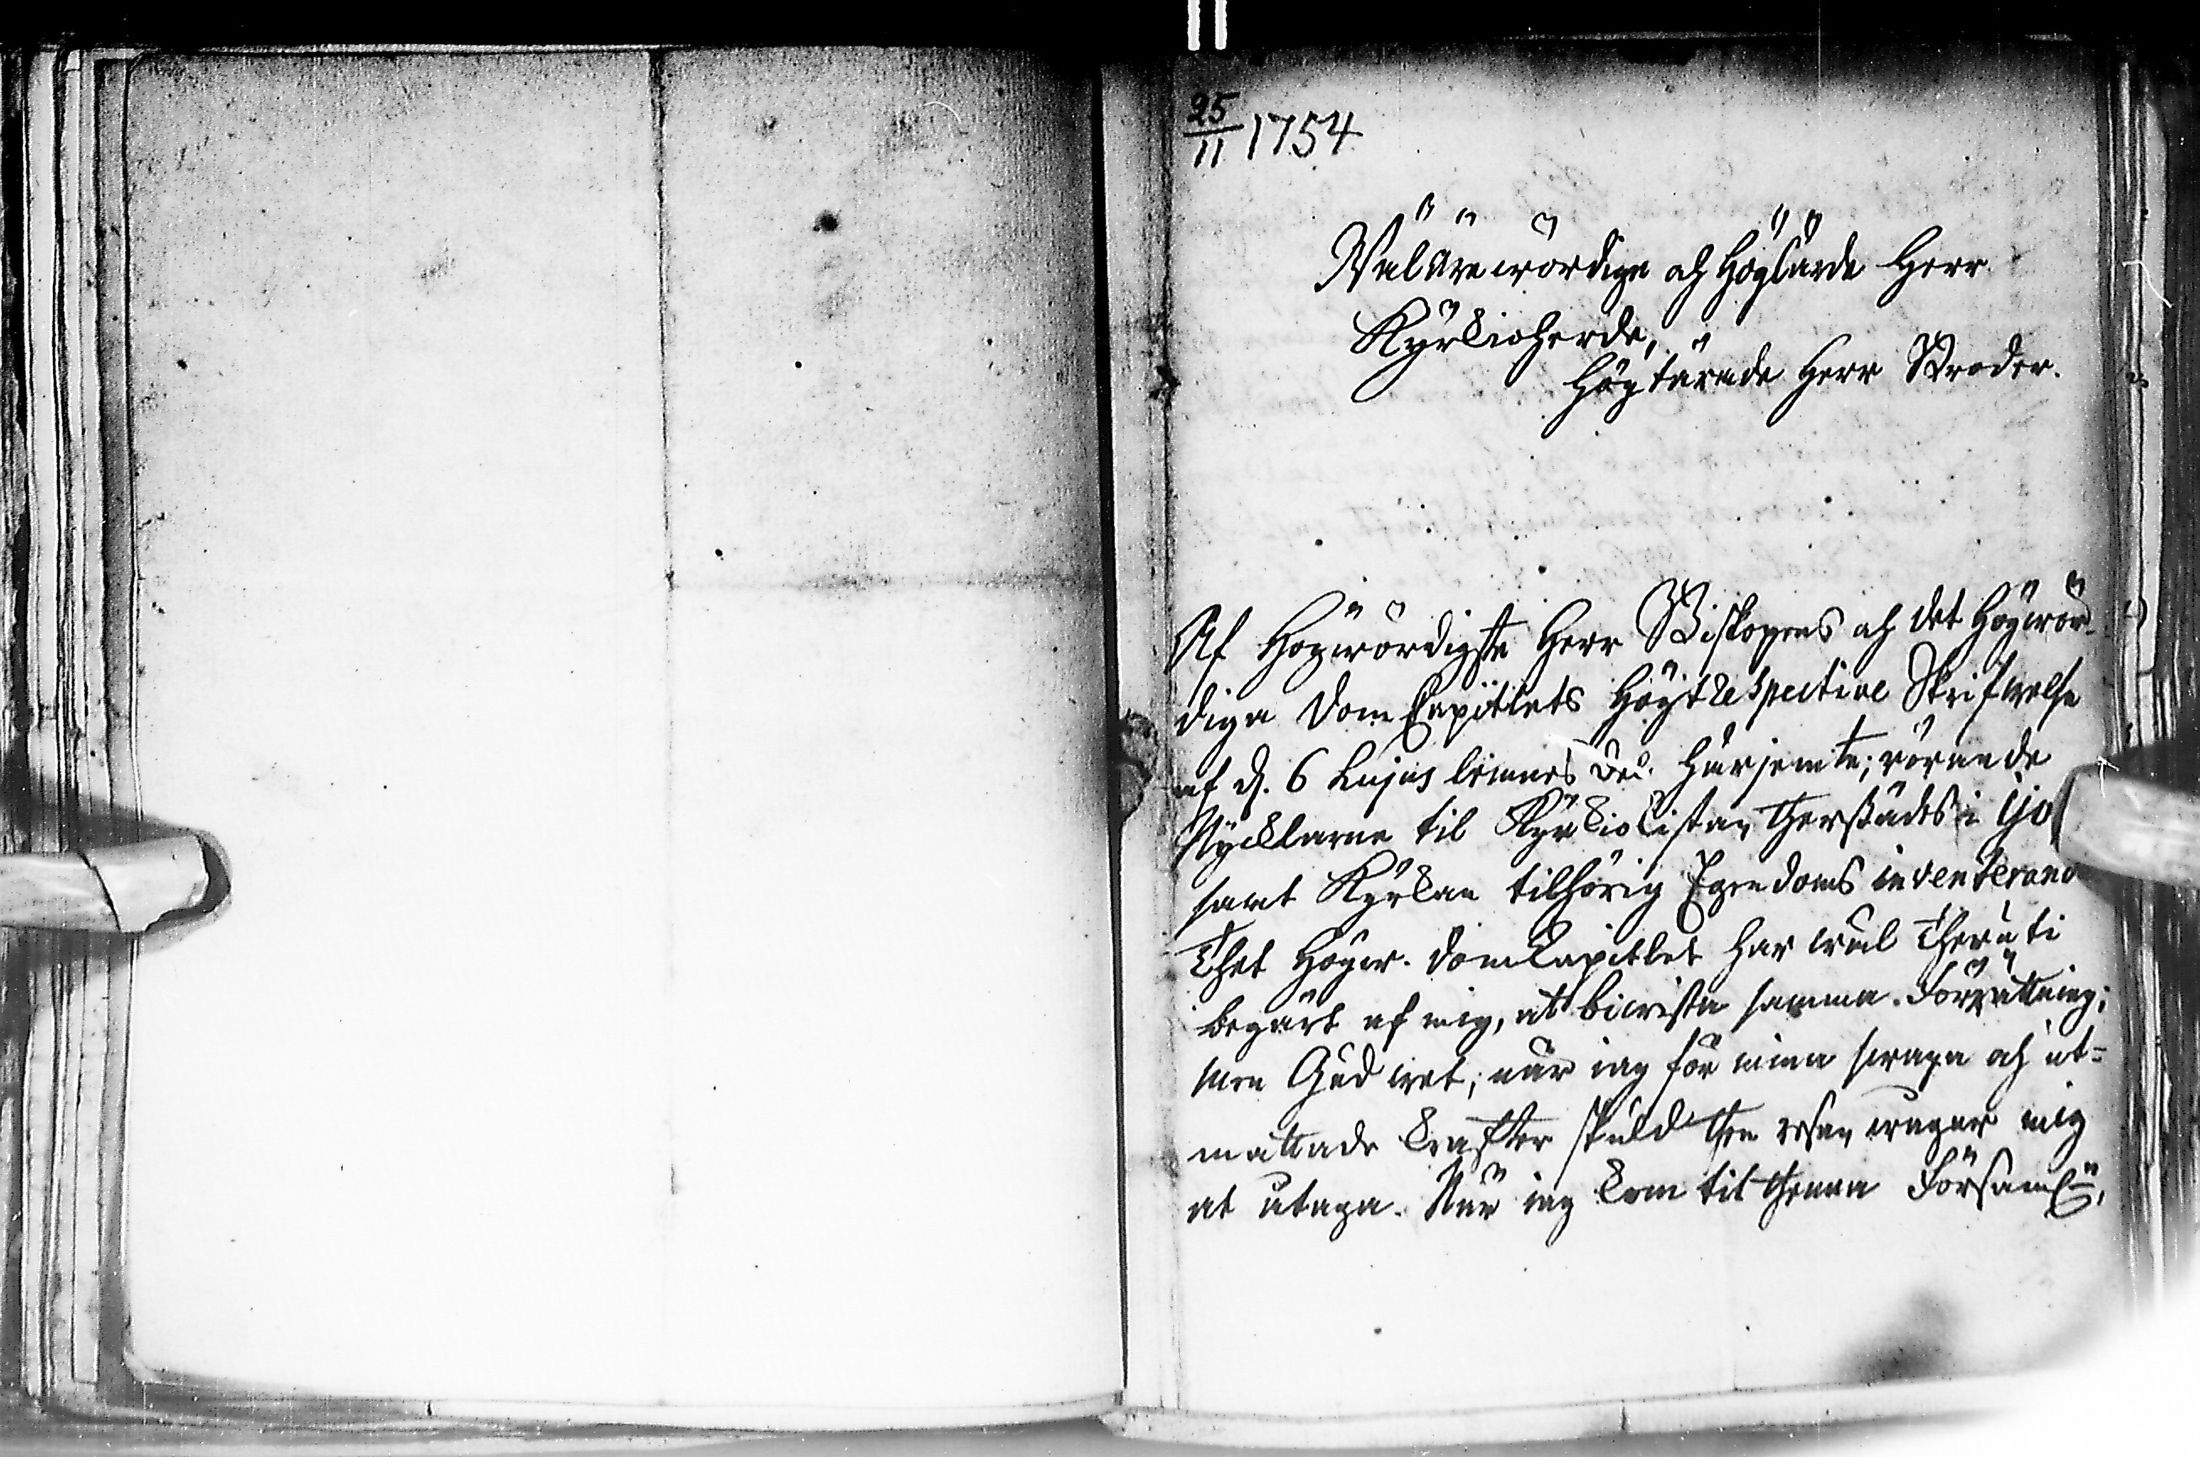 25/11 1754
Wälärewördige och Höglärde Herr
Kÿrkioherde,
Högtärade Herr Broder.
Af Högwördigste Herr Biskopens och det Högwör-
diga Dom Capitlets Högtrespective Skrifwelse
af d. 6 hujus lemnes härjemte; rörande
Nycklarne til Kyrkiokistan therstädes i
samt Kÿrkan tilhörig Egendoms inventerand
Thet Högw. DomCapitlet har wäl theruti
begärt af mig, at biwista samma Förrättning;
men Gud wet, när iag för mina swaga och ut-
mattade krafter skuld then resan wågar mig
at utaga. När iag kom til thenna Församl:,